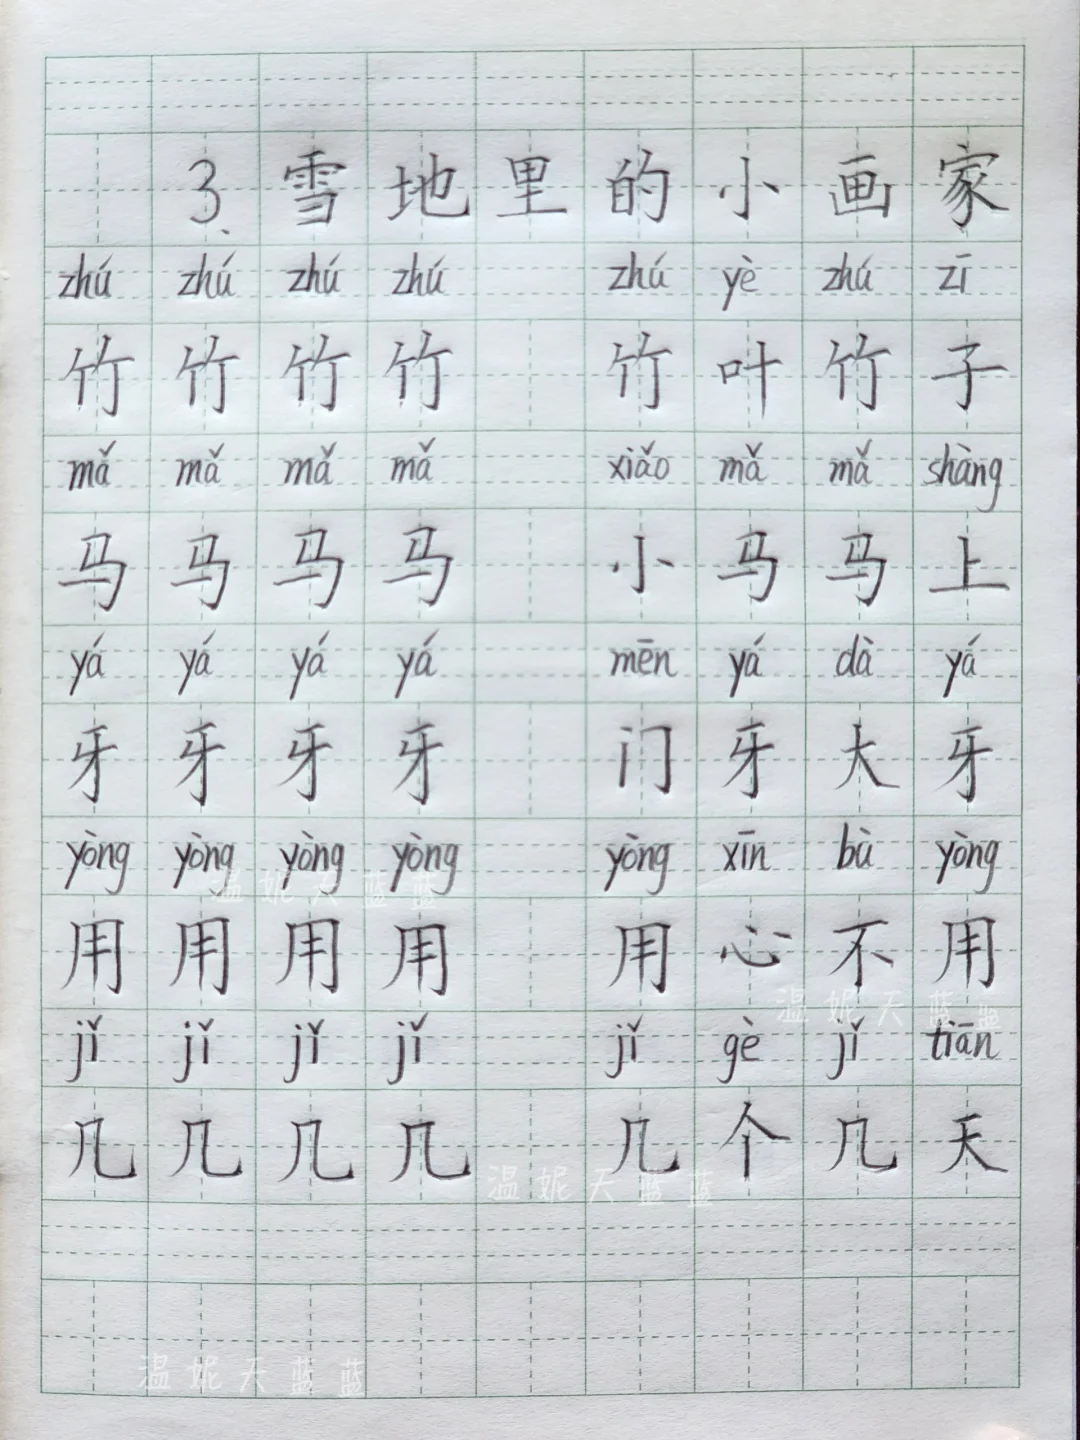 3、雪地里的小画家
zhú zhú zhú zhú zhú yè zhú zī
竹 竹 竹 竹 竹 叶 竹 子
mǎ mǎ mǎ mǎ xiǎo mǎ mǎ shàng
马 马 马 马 小 马 马 上
yá yá yá yá mēn yá dà yá
牙 牙 牙 牙 门 牙 大 牙
yòng yòng yòng yòng yòng xīn bù yòng
温妮天蓝蓝
用 用 用 用 用 心 不 用
温妮天蓝蓝
jǐ jǐ jǐ jǐ jǐ gè jǐ tiān
几 几 几 几 几 个 几 天
温妮天蓝蓝
温妮天蓝蓝